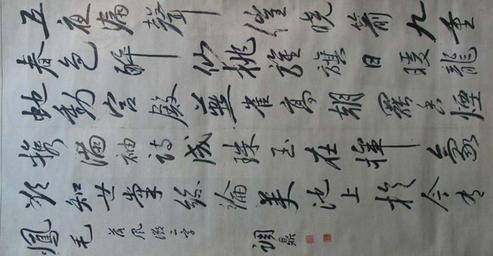 五夜漏聲催曉箭九重
春色醉仙桃旌旗日暖龍
蛇動宮殿燕雀高朝罷香煙
攜滿袖詩成珠玉在揮毫
欲知世掌絲綸美池上於今有
鳳毛 落風微二字 調鼎